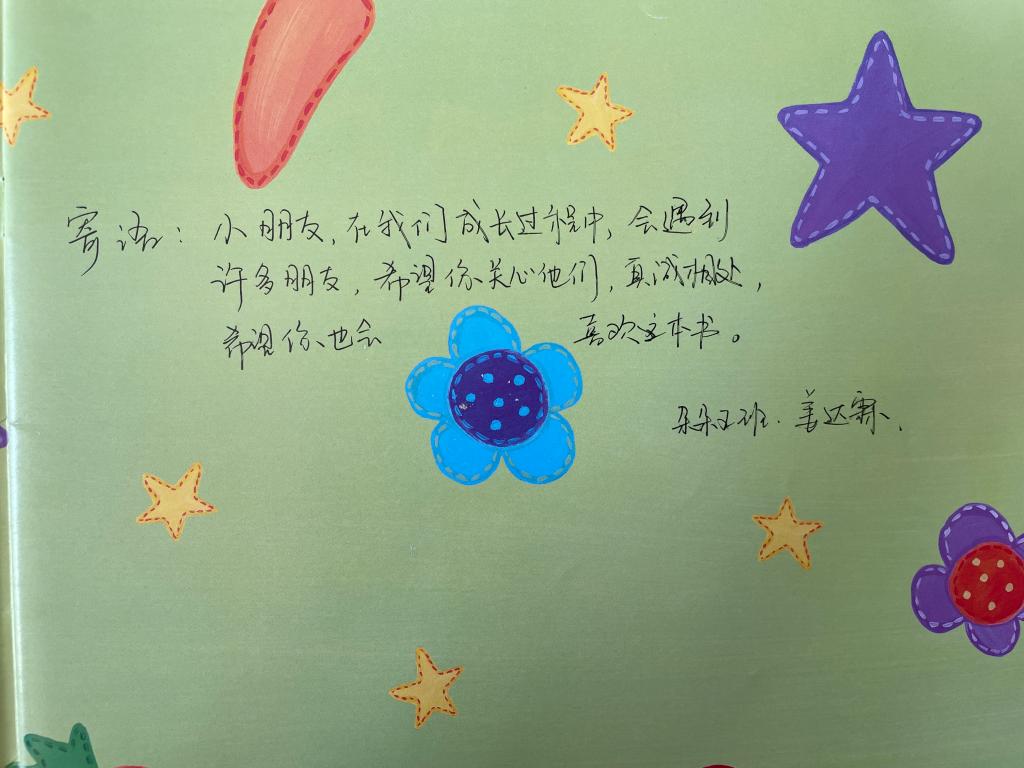 寄语：小朋友，在我们成长过程中，会遇到
许多朋友，希望你关心他们，真诚相处，
希望你也会喜欢这本书。
朵朵班.姜达霖.